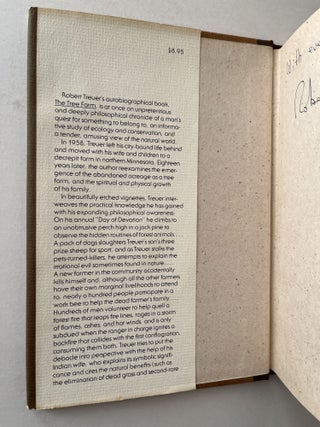 $8.95
With eve
Robe
Robert Treuer's autobiographical book,
The Tree Farm, is at once an unpretentious
and deeply philosophical chronicle of a man's
quest for something to belong to, an informa-
tive study of ecology and conservation, and
a tender, amusing view of the natural world.
In 1958, Treuer left his city-bound life behind
and moved with his wife and children to a
decrepit farm in northern Minnesota. Eighteen
years later, the author reexamines the emer-
gence of the abandoned acreage as a tree
farm, and the spiritual and physical growth
of his family.
In beautifully etched vignettes, Treuer inter-
weaves the practical knowledge he has gained
with his expanding philosophical awareness.
On his annual "Day of Devotion" he climbs to
an unobtrusive perch high in a jack pine to
observe the hidden routines of forest animals.
A pack of dogs slaughters Treuer's son's three
prize sheep for sport, and as Treuer stalks the
pets-turned-killers, he attempts to explain the
irrational evil sometimes found in nature.
A new farmer in the community accidentally
kills himself and, although all the other farmers
have their own marginal livelihoods to attend
to, nearly a hundred people participate in a
work bee to help the dead farmer's family.
Hundreds of men volunteer to help quell a
forest fire that leaps fire lines, rages in a storm
of flames, ashes, and hot winds, and is only
subdued when the ranger in charge ignites a
backfire that collides with the first conflagration,
consuming them both. Treuer tries to put the
debacle into perspective with the help of his
Indian wife, who explains its symbolic signifi-
cance and cites the natural benefits (such as
the elimination of dead grass and second-rate